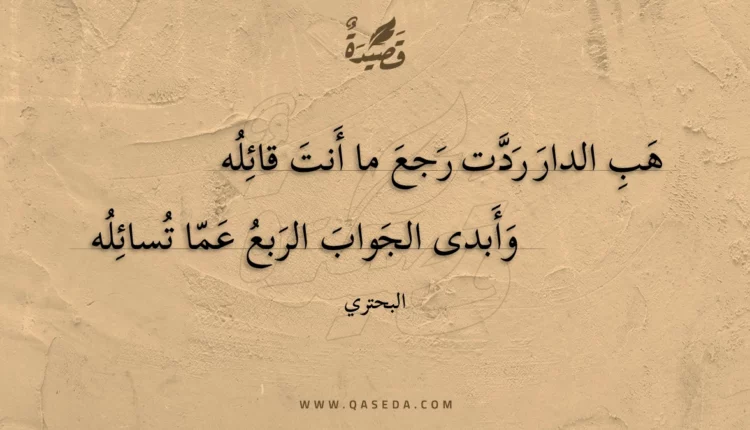 قَصِيدَةٌ
هَبِ الدارَ رَدَّت رَجعَ ما أَنتَ قائِلُه
وَأَبدى الجَوابَ الرَبعُ عَمّا تُسائِلُه
البحتري
WWW.QASEDA.COM